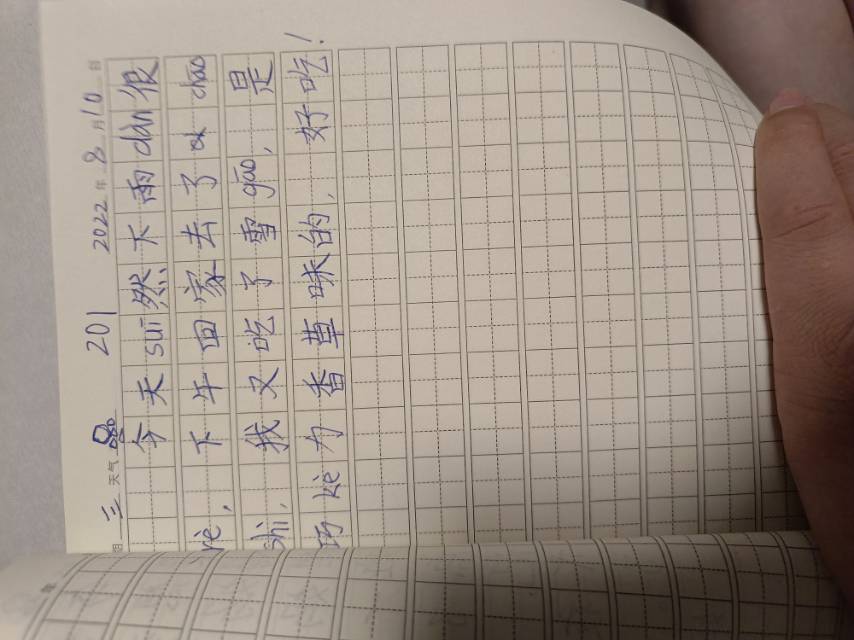 三 天气 201 2022 年 8 月 10 日
今天suī然下雨dàn很
rè，下午回家去了chāo
shì，我又吃了雪gāo，是
巧kè力香草味的，好吃！